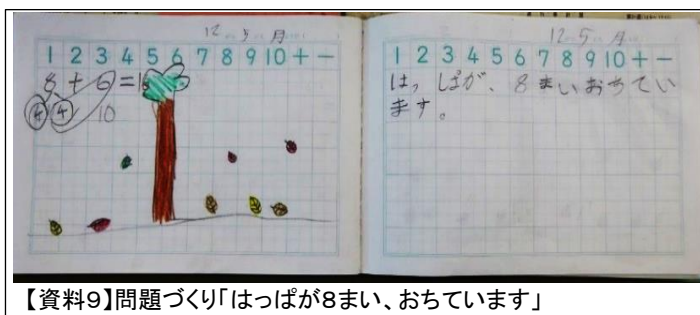 12 5 月
1 2 3 4 5 6 7 8 9 10 + −
8 + 6 = 1
4 4 10
12 5 月
1 2 3 4 5 6 7 8 9 10 + −
はっぱが、8まいおちてい
ます。
【資料9】問題づくり「はっぱが8まい、おちています」